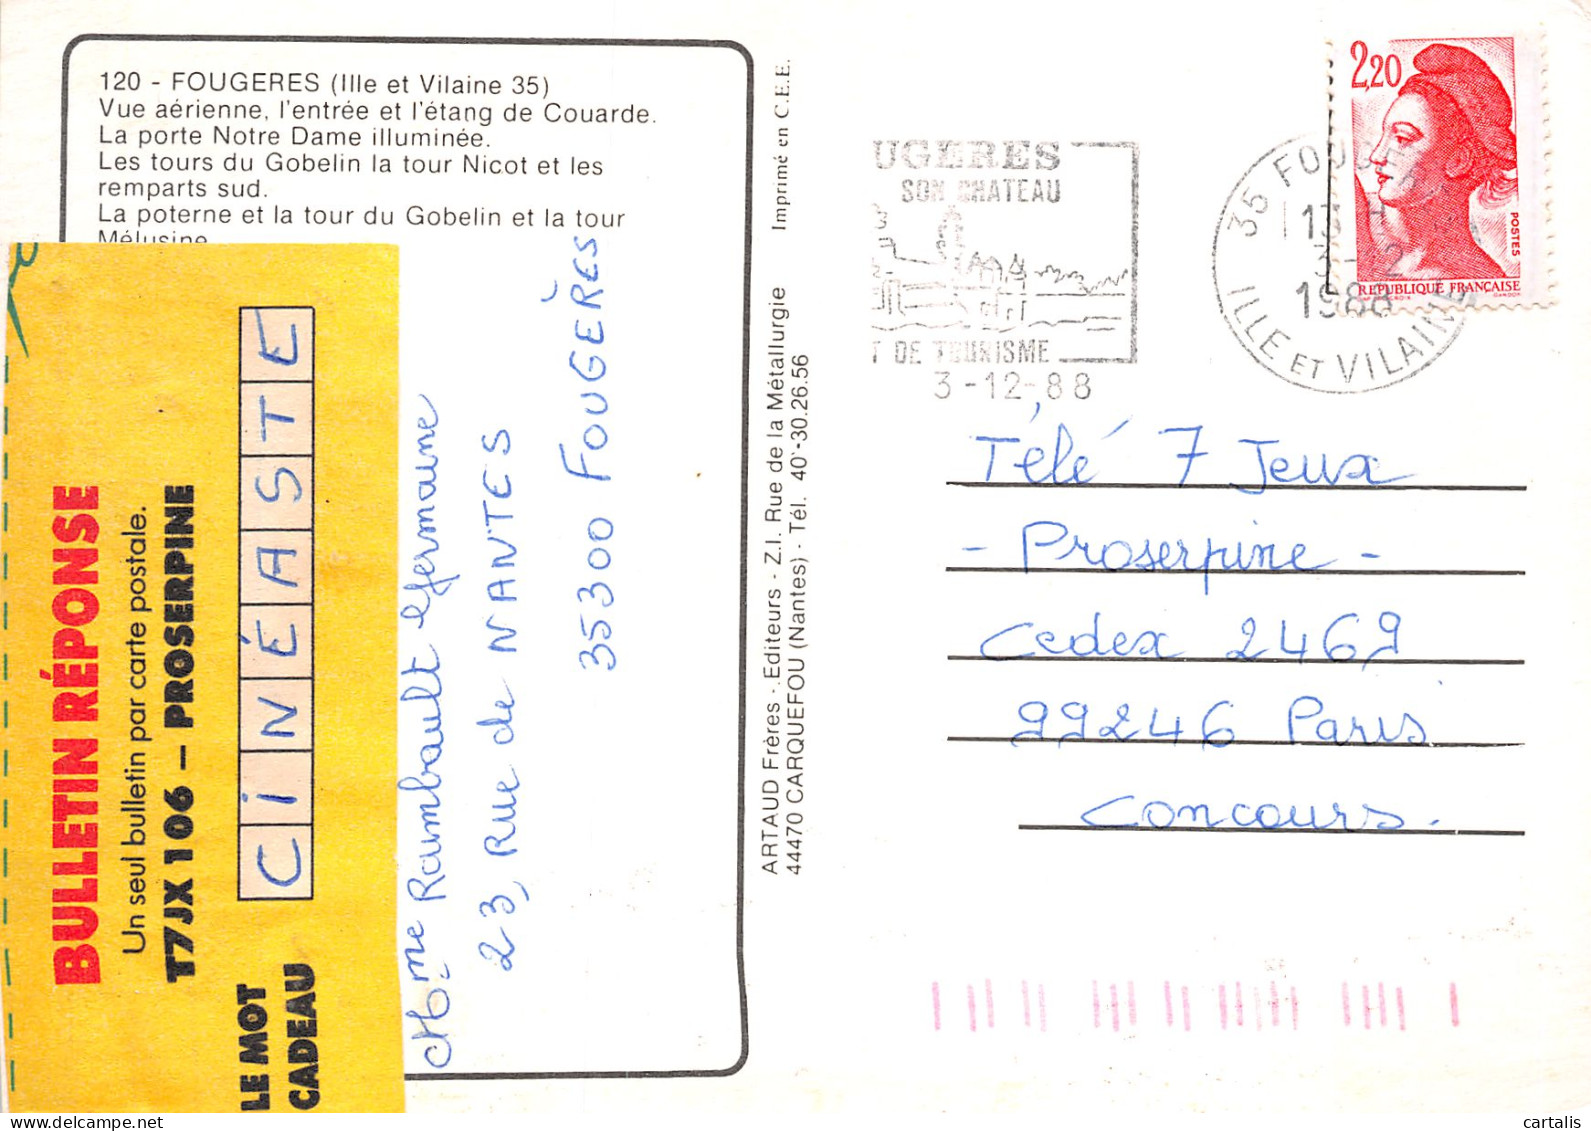 120 - FOUGERES (Ille et Vilaine 35)
Vue aérienne, l'entrée et l'étang de Couarde.
La porte Notre Dame illuminée.
Les tours du Gobelin la tour Nicot et les
remparts sud.
La poterne et la tour du Gobelin et la tour
Mélusine
BULLETIN RÉPONSE
Un seul bulletin par carte postale.
T7JX 106 – PROSERPINE
LE MOT
CADEAU
CINÉASTE
Mme Rambault Germaine
23, Rue de NANTES
35300 FOUGÈRES
Imprimé en C.E.E.
ARTAUD Frères - Editeurs - Z.I. Rue de la Métallurgie
44470 CARQUEFOU (Nantes) - Tél. 40-30.26.56
UGERES
SON CHATEAU
T DE TOURISME
3-12-88
35 FOUGERES
13 H
3-12
1988
ILLE ET VILAINE
2,20
POSTES
REPUBLIQUE FRANÇAISE
Télé 7 Jeux
- Proserpine -
Cedex 2469
99246 Paris
Concours.
delcampe.net
cartalis